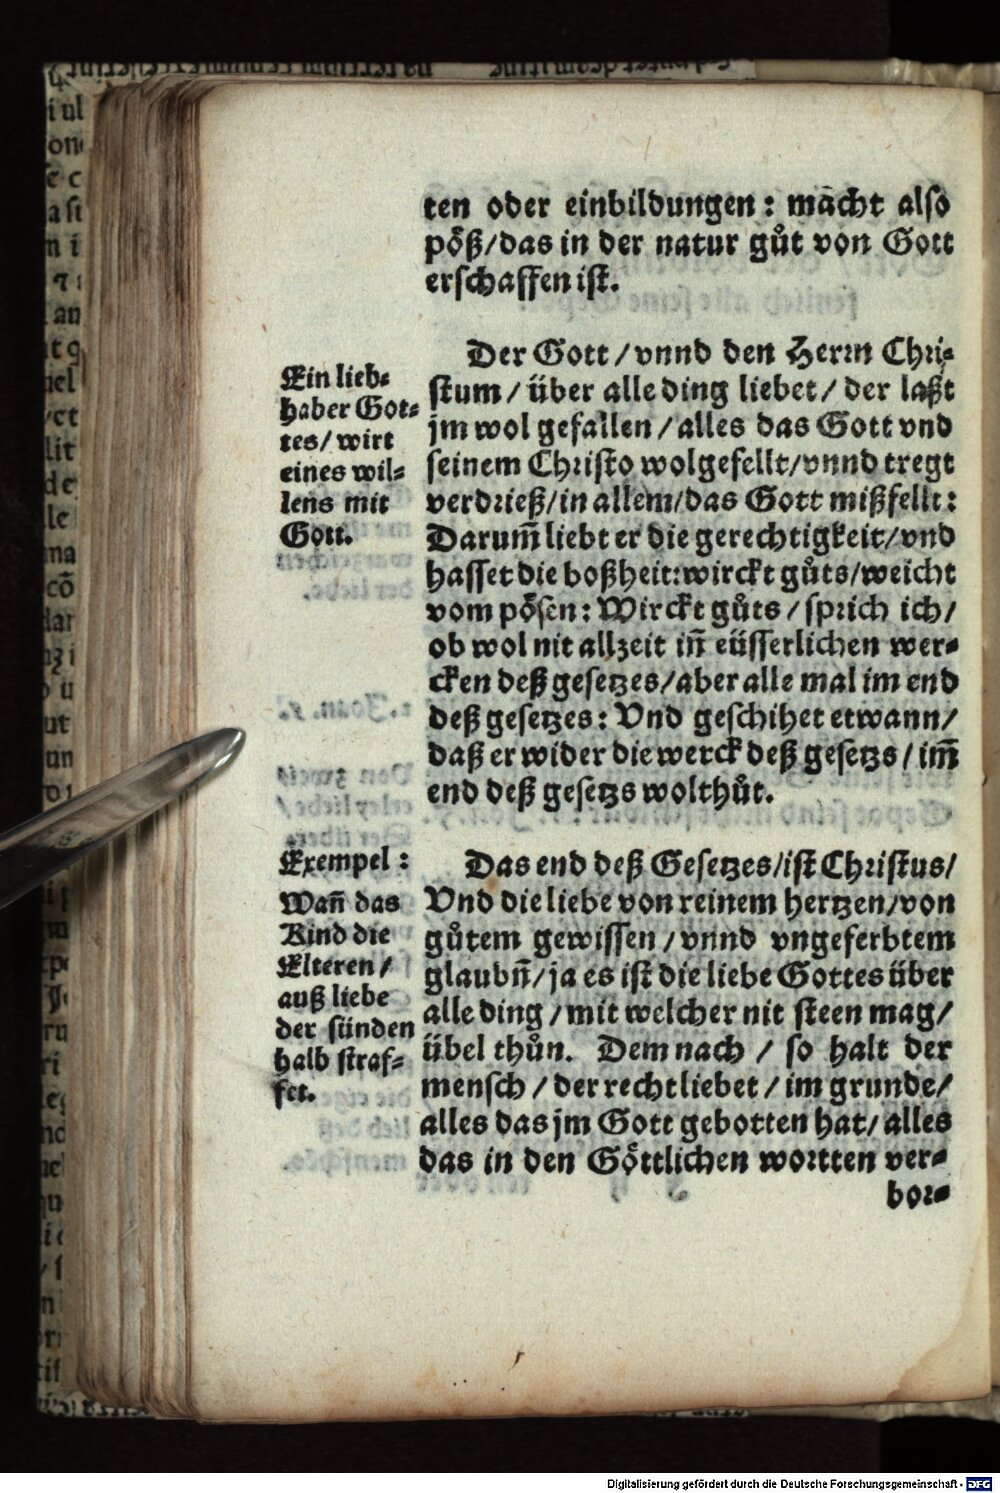 ten oder einbildungen: mächt also
pöß/das in der natur gůt von Gott
erschaffen ist.
Der Gott/vnnd den Herrn Chri-
stum/über alle ding liebet/der laßt
jm wol gefallen/alles das Gott vnd
seinem Christo wolgefellt/vnnd tregt
verdrieß/in allem/das Gott mißfellt:
Darum̄ liebt er die gerechtigkeit/vnd
hasset die boßheit:wirckt gůts/weicht
vom pösen: Wirckt gůts/sprich ich/
ob wol nit allzeit in̄ eüsserlichen wer-
cken deß gesetzes/aber alle mal im end
deß gesetzes: Vnd geschihet etwann/
daß er wider die werck deß gesetzs/im̄
end deß gesetzs wolthůt.
Das end deß Gesetzes/ist Christus/
Vnd die liebe von reinem hertzen/von
gůtem gewissen/vnnd vngeferbtem
glaubn̄/ja es ist die liebe Gottes über
alle ding/mit welcher nit steen mag/
übel thůn. Demnach/so halt der
mensch/der recht liebet/im grunde/
alles das jm Gott gebotten hat/alles
das in den Göttlichen wortten ver-
bor-
Ein lieb-
haber Got-
tes/wirt
eines wil-
lens mit
Gott.
Exempel:
Wan̄ das
Kind die
Elteren/
auß liebe
der sünden
halb straf-
fet.
Digitalisierung gefördert durch die Deutsche Forschungsgemeinschaft - DFG